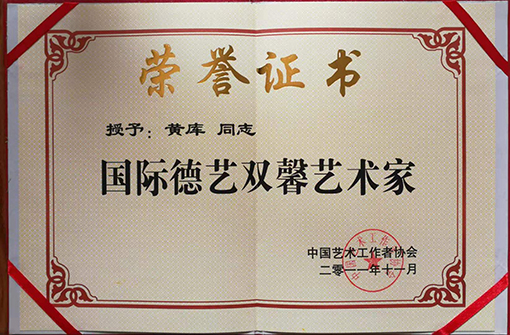 荣誉证书
授予：黄库 同志
国际德艺双馨艺术家
中国艺术工作者协会
二零一一年十一月